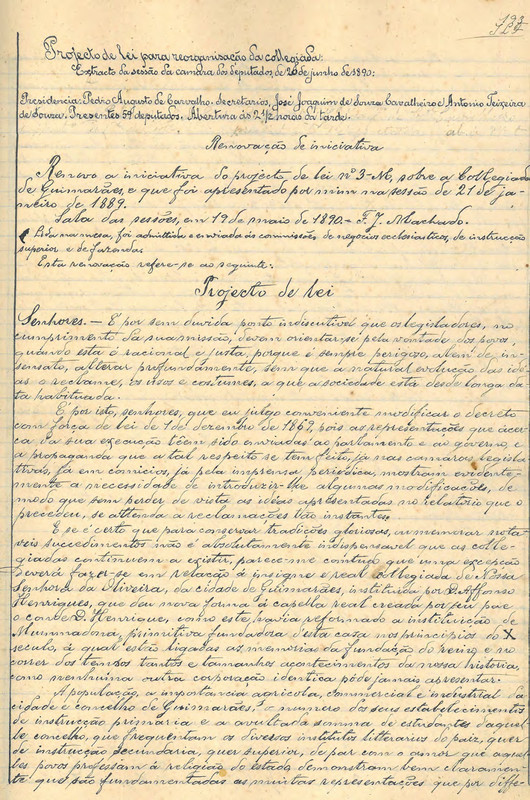 Projecto de lei para reorganisação da collegiada.
Extracto da sessão da camara dos deputados de 20 de junho de 1890:
Presidencia: Pedro Augusto de Carvalho. Secretarios, José Joaquim de Sousa Cavalheiro e Antonio Teixeira
de Sousa. Presentes 59 deputados. Abertura ás 2 1/2 horas da tarde.
Renovação de iniciativa
Renovo a iniciativa do projecto de lei nº 3-M, sobre a Collegiada
de Guimarães, e que foi apresentado por mim na sessão de 21 de ja-
neiro de 1889.
Sala das sessões, em 19 de maio de 1890 - F. J. Machado.
Lida na mesa, foi admittida e enviada ás commissões de negocios ecclesiasticos, de instrucção
superior e de fazenda.
Esta renovação refere-se ao seguinte:
Projecto de lei
Senhores. - É por sem duvida ponto indiscutivel que os legisladores, no
cumprimento da sua missão, devem orientar-se pela vontade dos povos,
quando esta é racional e justa, porque é sempre perigoso, alem de in-
sensato, alterar profundamente, sem que a natural evolução das idé-
as o reclame, os usos e costumes, a que a sociedade está desde longa da-
ta habituada.
É por isto, senhores, que eu julgo conveniente modificar o decreto
com força de lei de 1 de dezembro de 1869, pois as representações que ácer-
ca da sua execução têem sido enviadas ao parlamento e ao governo e
a propaganda que a tal respeito se tem feito, já nas camaras legisla-
tivas, já em comicios, já pela imprensa periodica, mostram evidente-
mente a necessidade de introduzir-lhe algumas modificações, de
modo que sem perder de vista as idéas apresentadas no relatorio que o
precedeu, se attenda a reclamações tão instantes.
E se é certo que para conservar tradições gloriosas, ou memorar nota-
veis succedimentos não é absolutamente indispensavel que as colle-
giadas continuem a existir, parece-me comtudo que uma excepção
deverá fazer-se em relação á insigne e real collegiada de Nossa
Senhora da Oliveira, da cidade de Guimarães, instituida por D. Affonso
Henriques, que deu nova forma á capella real creada por seu pae
o conde D. Henrique, como este, havia reformado a instituição de
Mummadona, primitiva fundadora d'esta casa nos principios do X
seculo, á qual estão ligadas as memorias da fundação do reino e no
correr dos tempos tantos e tamanhos acontecimentos da nossa historia,
como nenhuma outra corporação identica póde jamais apresentar.
A população, a importancia agricola, commercial e industrial da
cidade e concelho de Guimarães, o numero dos seus estabelecimentos
de instrucção primaria e a avultada somma de estudantes d'aquel-
le concelho, que frequentam os diversos institutos litterarios do paiz, quer
de instrucção secundaria, quer superior, de par com o amor que aquel-
les povos professam á religião do estado demonstram bem claramen-
te que são fundamentadas as muitas representações que por diffe-